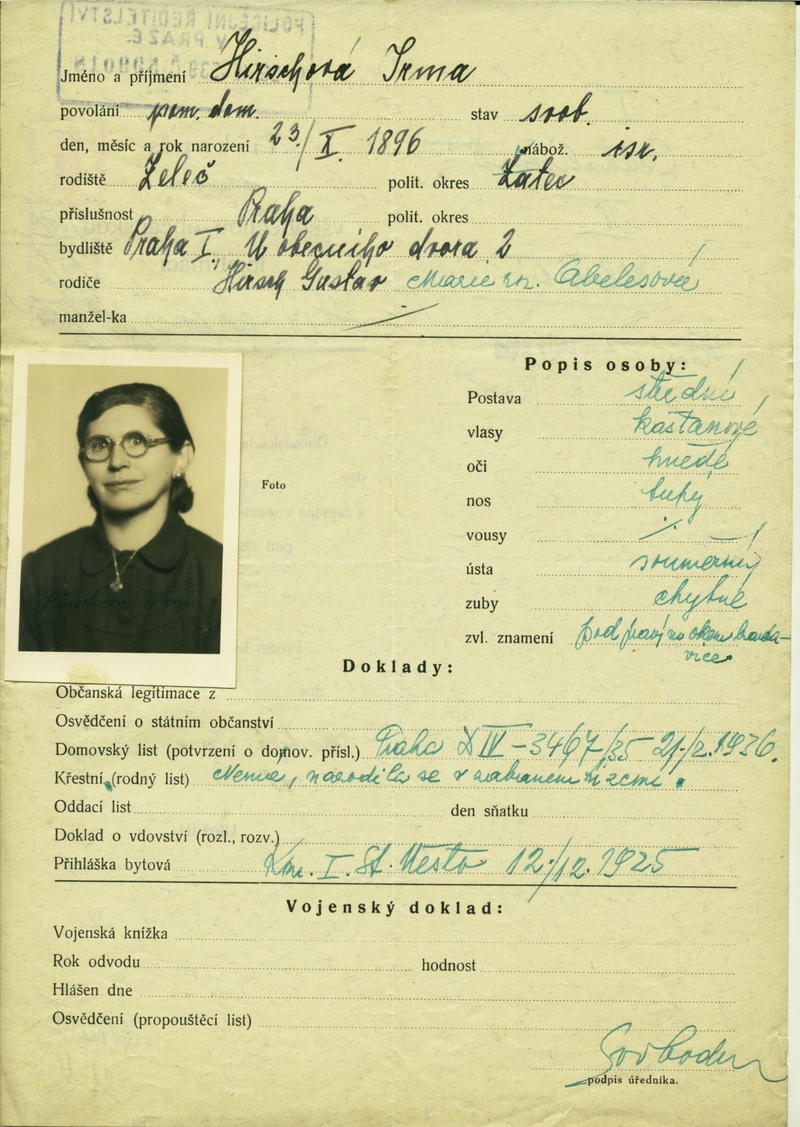 POLICEJNÍ ŘEDITELSTVÍ
V PRAZE.
Jméno a příjmení Hirschová Irma
povolání pom. dom. stav svob.
den, měsíc a rok narození 23/X. 1896 nábož. isr.
rodiště Želeč polit. okres Žatec
příslušnost Praha polit. okres
bydliště Praha I, U obecního dvora 2
rodiče Hirsch Gustav Marie roz. Abelesová
manžel-ka
Popis osoby:
Postava střední
vlasy kaštanové
oči hnědé
Foto
nos tuhý
vousy
ústa souměrný
Hirschová Irma
zuby chybné
zvl. znamení pod pravým okem brada-
vice
Doklady:
Občanská legitimace z
Osvědčení o státním občanství
Domovský list (potvrzení o domov. přísl.) Praha D IV - 3467/35 21./2. 1936.
Křestní (rodný list) Nemá, narodila se v zabraném území.
Oddací list den sňatku
Doklad o vdovství (rozl., rozv.)
Přihláška bytová Km. I. St. Město 12./12. 1925
Vojenský doklad:
Vojenská knížka
Rok odvodu hodnost
Hlášen dne
Osvědčení (propouštěcí list)
Svoboda
podpis úředníka.